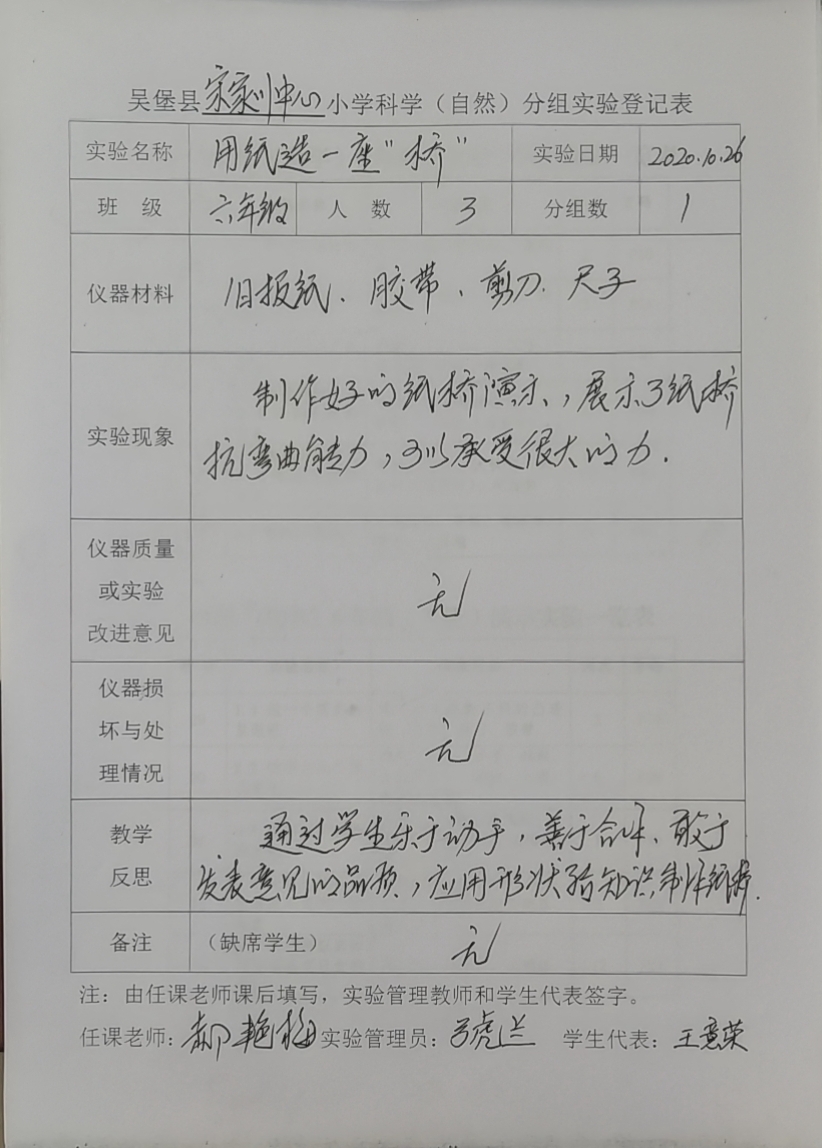 吴堡县宋家川中心小学科学（自然）分组实验登记表
实验名称 用纸造一座“桥” 实验日期 2020.10.26
班 级 六年级 人 数 3 分组数 1
仪器材料 旧报纸、胶带、剪刀、尺子
实验现象 制作好的纸桥演示，展示了纸桥
抗弯曲能力，可以承受很大的力.
仪器质量
或实验
改进意见
无
仪器损
坏与处
理情况
无
教学
反思
通过学生乐于动手，善于合作、敢于
发表意见的品质，应用形状 知识制作纸桥.
备注 （缺席学生） 无
注：由任课老师课后填写，实验管理教师和学生代表签字。
任课老师：郝艳梅 实验管理员： 虎兰 学生代表：王意荣